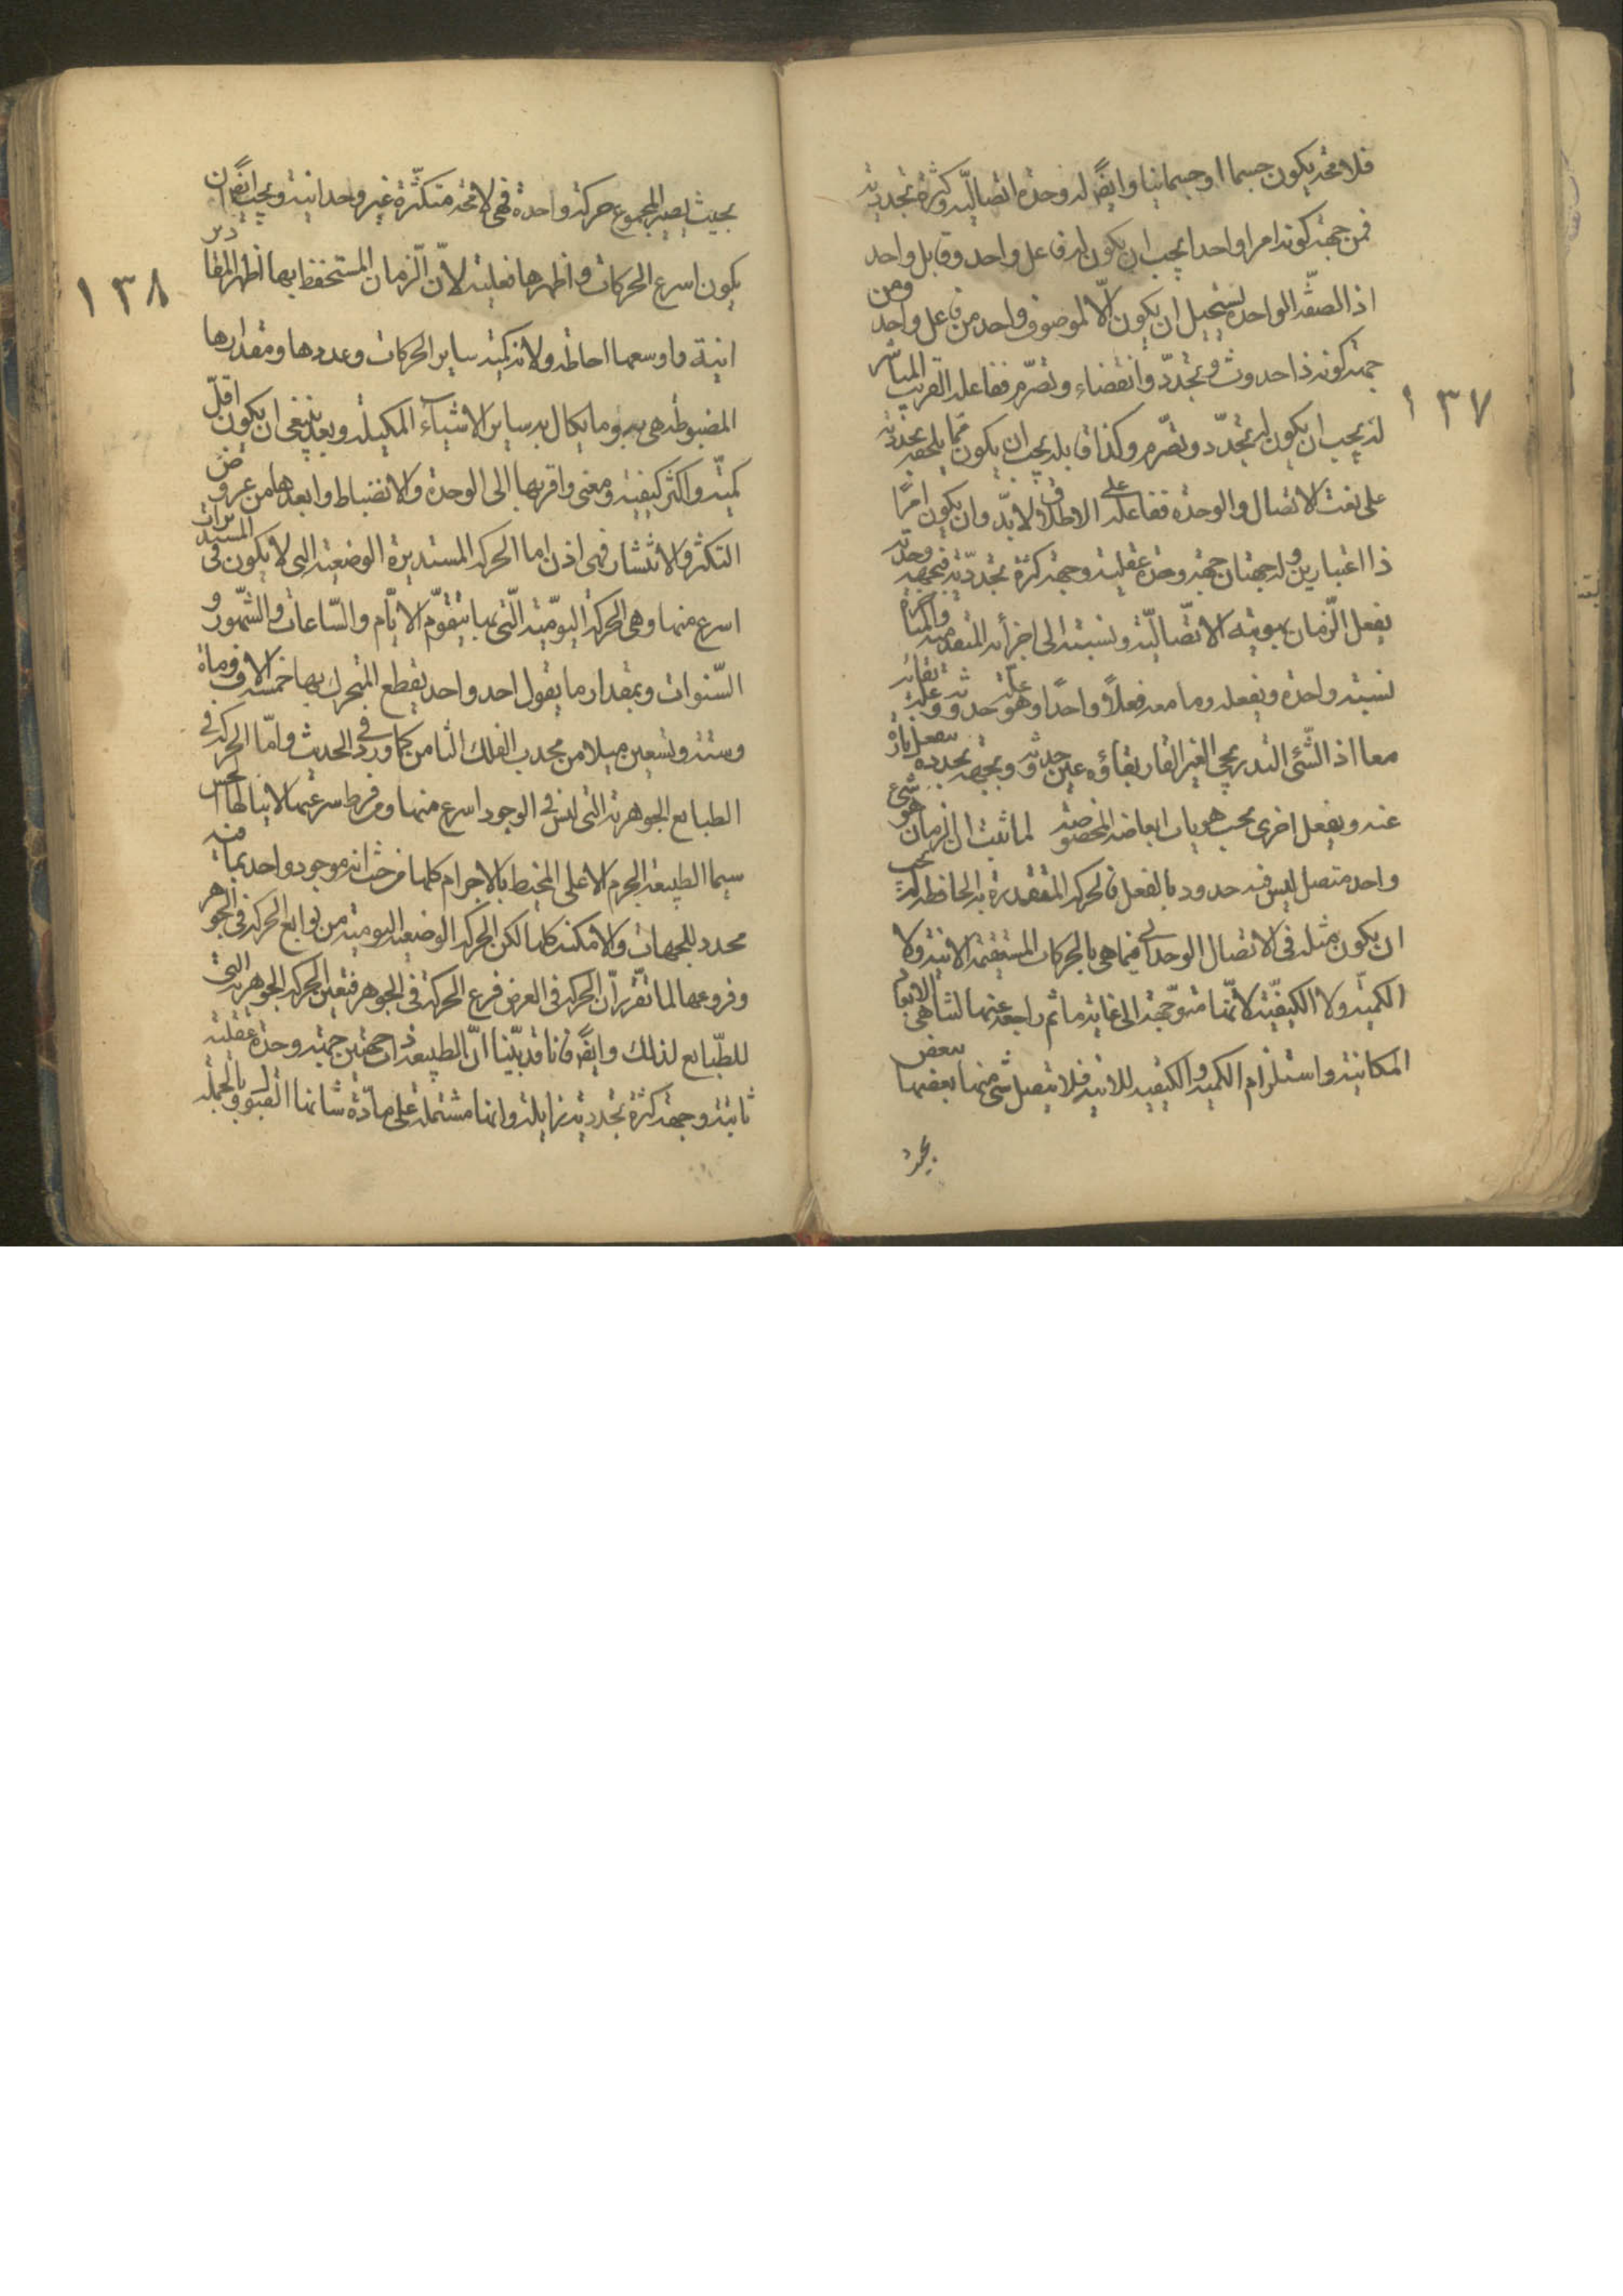 فلا محة يكون جسما او جسمانيا وايضً له وحدة اتصالية وكثرة تجددية
فمن جهة كونه امرا واحدا يجب ان يكون له فاعل واحد وقابل واحد
اذ الصفة الواحدة يستحيل ان يكون الّا لموصوف واحد من فاعل واحد ومن
جهة كونه ذا حدوث وتجدّد وانقضاء وتصرّم ففاعله القريب المباشر
له يجب ان يكون له تجدّد وتصرّم وكذا قابله يجب ان يكون ممّا يلحقه تجددية
على نعت الاتصال والوحدة ففاعله على الاطلاق لا بدّ وان يكون امرًا
ذا اعتبارين وله جهتان جهة وحدة عقلية وجهة كثرة تجدّدية فبجهة وحدته
يفعل الزمان بهويته الاتّصاليّة ونسبته الى اجزائه المتقدمة والمتأخرة
نسبة واحدة ويفعله وما معه فعلاً واحدًا وهو علّة حدوثه وعلة بقائه
معا اذ الشّئ التدريجى الغير القار بقاؤه عين حدوثه وبجهة تجدده ينفعل تارة
عنه ويفعل اخرى بحسب هويات ابعاضه المخصوصة لما ثبت ان الزمان شئ
واحد متصل ليس فيه حدود بالفعل فالحركة المتقدرة به الحافظة له يجب
ان يكون مثله فى الاتصال الوحدانى فما هى بالحركات المستقيمة الاينية ولا
الكمّية ولا الكيفيّة لانّها متوجّهة الى غاية ما ثم راجعة عنها لتناهى الابعاد
المكانية واستلزام الكمية والكيفية للاينية فلا يتصل شئ منها بعضها ببعض
١٣٧
بحيث يصير المجموع حركة واحدة فهى لا محة متكثّرة غير وحدانية ويجب ايضًا ان
يكون اسرع الحركات واظهرها فعلية لانّ الزمان المستحفظ بها اظهر المقادير
انية واوسعها احاطة ولانه كمية ساير الحركات وعددها ومقدارها
المضبوطة هى به وما يكال به ساير الاشياء المكيلة ويعد ينبغى ان يكون اقلّ
كميّة واكثر كيفية ومعنى واقربها الى الوحدة والانضباط وابعدها من عروض
التكثر والانتشار فهى اذن اما الحركة المستديرة الوضعية التى لا يكون فى المستديرات
اسرع منها وهى الحركة اليوميّة الّتى بها يتقوّم الايّام والسّاعات والشّهور و
السّنوات وبمقدار ما يقول احد واحد يقطع المتحرك بها خمسة الاف ومأة
وستة وتسعين ميلا من محدب الفلك الثامن كما ورد فى الحدث وامّا الحركة فى
الطبايع الجوهرية التى ليس فى الوجود اسرع منها ومن فرط سرعتها لا ينالها الحس
سيما الطبيعة الجرم الاعلى المحيط بالاجرام كلها من حيث انه موجود واحد بما فيه
محدد للجهات والامكنة كلها لكن الحركة الوضعية اليومية من توابع الحركة فى الجوهر
وفروعها لما تقرّر انّ الحركة فى العرض فرع الحركة فى الجوهر فتعين الحركة الجوهرية التى
للطّبايع لذلك وايضً فانا قد بيّنا انّ الطبيعة ذات جهتين جهة وحدة عقلية
ثابتة وجهة كثرة تجددية زايلة وانها مشتملة على مادّة شانها القبول وبالجملة
١٣٨